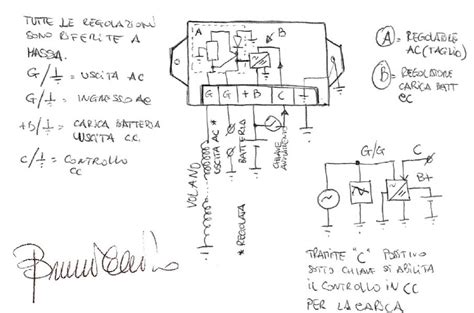 TUTTE LE REGOLAZIONI
SONO RIFERITE A
MASSA.
G/⏚ = USCITA AC
G/⏚ = INGRESSO AC
+B/⏚ = CARICA BATTERIA
USCITA CC.
C/⏚ = CONTROLLO
CC
A
B
G G +B C ⏚
VOLANO
USCITA AC *
BATTERIA
CHIAVE
AVVIAMENTO
* REGOLATA
A = REGOLATORE
AC (TAGLIO)
B = REGOLATORE
CARICA BATT
CC
G/G
C
B+
TRAMITE "C" POSITIVO
SOTTO CHIAVE SI ABILITA
IL CONTROLLO IN CC
PER LA CARICA